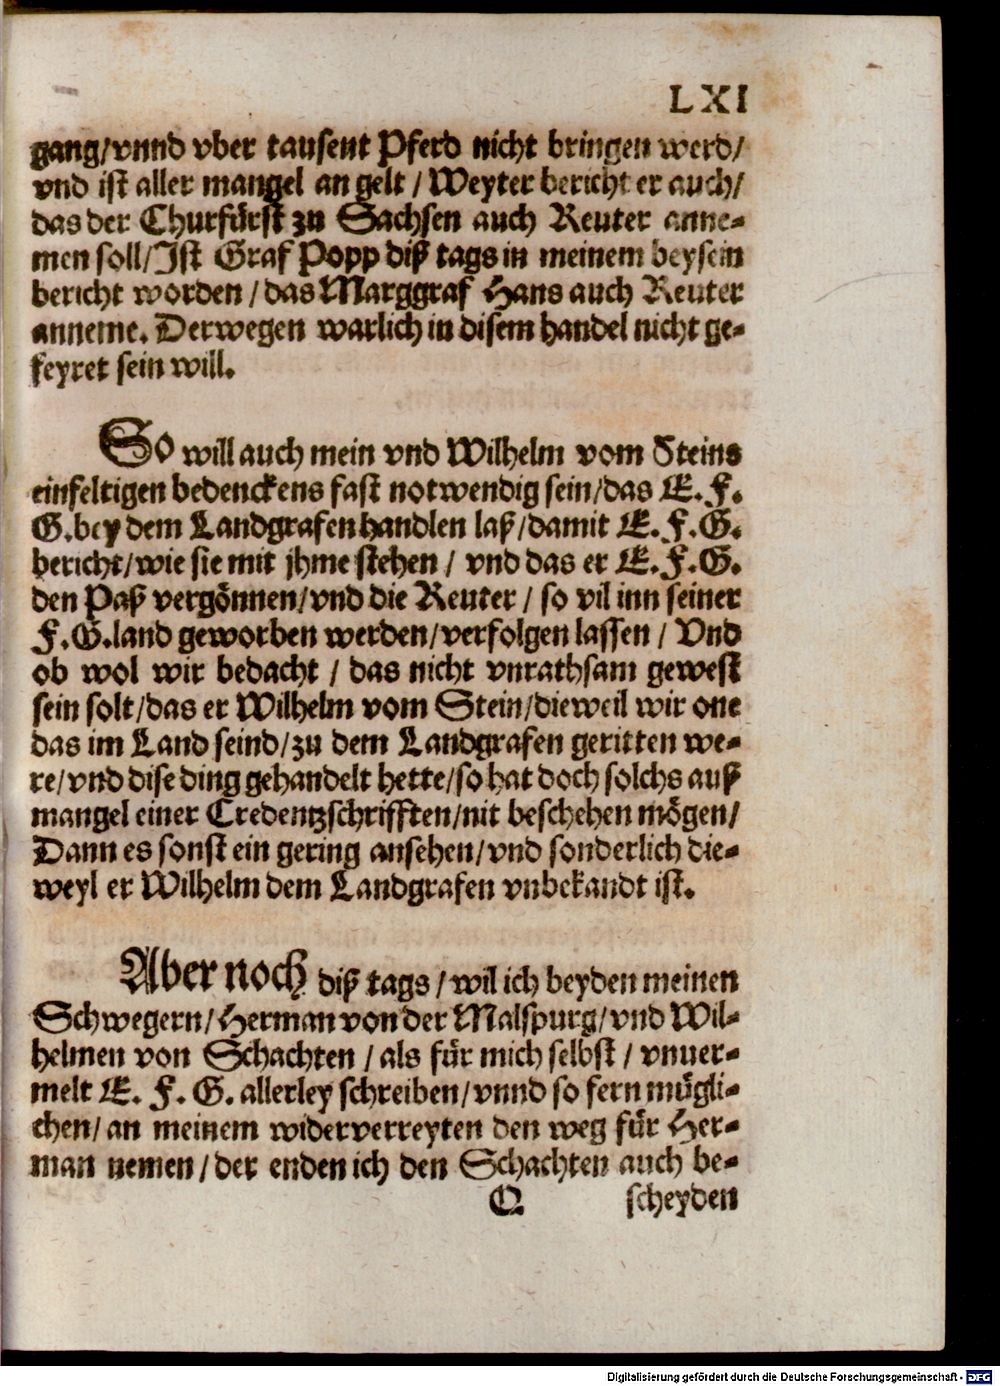 LXI
gang/vnnd vber tausent Pferd nicht bringen werd/
vnd ist aller mangel an gelt / Weyter bericht er auch/
das der Churfürst zu Sachsen auch Reuter anne-
men soll/Ist Graf Popp diß tags in meinem beysein
bericht worden / das Marggraf Hans auch Reuter
anneme. Derwegen warlich in disem handel nicht ge-
feyret sein will.
So will auch mein vnd Wilhelm vom Steins
einfeltigen bedenckens fast notwendig sein/das E. F.
G.bey dem Landgrafen handlen laß/damit E. F. G.
bericht/wie sie mit jhme stehen / vnd das er E. F. G.
den Paß vergönnen/vnd die Reuter / so vil inn seiner
F. G.land geworben werden/verfolgen lassen / Vnd
ob wol wir bedacht / das nicht vnrathsam gewest
sein solt/das er Wilhelm vom Stein/dieweil wir one
das im Land seind/zu dem Landgrafen geritten we-
re/vnd dise ding gehandelt hette/so hat doch solchs auß
mangel einer Credentzschrifften/nit beschehen mögen/
Dann es sonst ein gering ansehen/vnd sonderlich die-
weyl er Wilhelm dem Landgrafen vnbekandt ist.
Aber noch diß tags / wil ich beyden meinen
Schwegern/Herman von der Malspurg/vnd Wil-
helmen von Schachten / als für mich selbst / vnuer-
melt E. F. G. allerley schreiben/vnnd so fern mügli-
chen/ an meinem widerverreyten den weg für Her-
man nemen / der enden ich den Schachten auch be-
Q scheyden
Digitalisierung gefördert durch die Deutsche Forschungsgemeinschaft - DFG